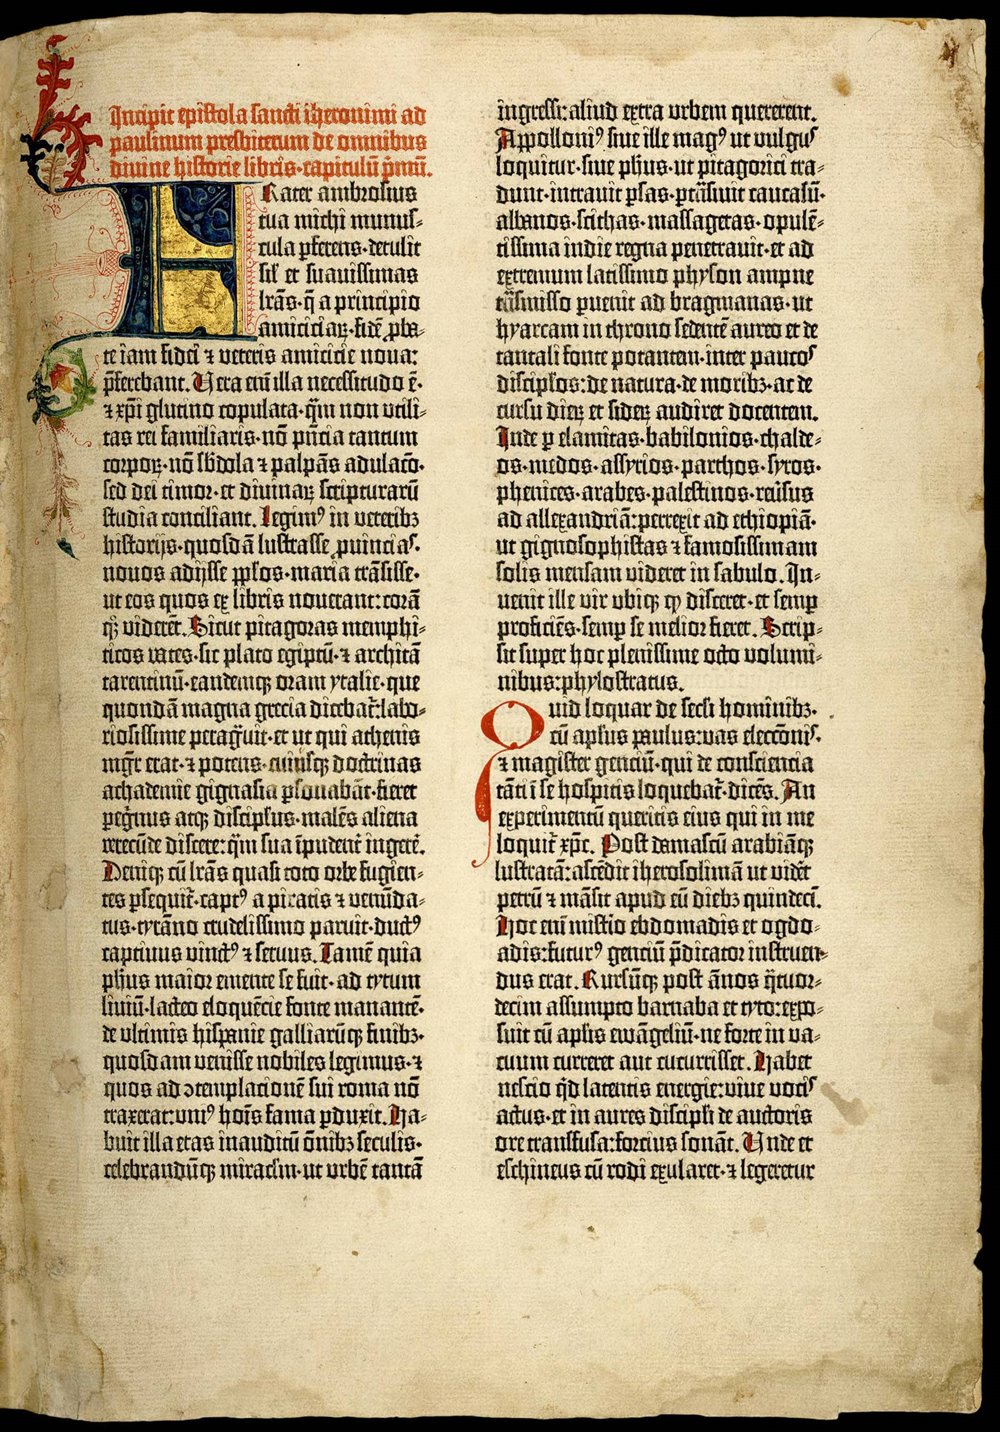 Incipit epistola sancti iheronimi ad
paulinum presbiterum de omnibus
divine historie libris·capitulū p̄mū.
Frater ambrosius
tua michi munus-
cula ꝑferens·detulit
sil̓ et suavissimas
lr̄as·q̄ a principio
amiciciaꝝ·fidē ꝓba-
te iam fidei ⁊ veteris amicicie nova:
p̄ferebant. Vera enī illa necessitudo ē·
⁊ xp̄i glutino copulata·q̄m non utili-
tas rei familiaris·nō p̄n̄cia tantum
corpoꝝ·nō sb̓dola ⁊ palpās adulacō·
sed dei timor·et divinaꝝ scripturarū
studia conciliant. Legim⁹ in veteribꝫ
historijs·quosdā lustrasse ꝓvincias·
novos adijsse ꝓplos·maria trāsisse·
ut eos quos ex libris noverant: corā
qꝫ viderēt. Sicut pitagoras memphi-
ticos vates·sic plato egiptū·⁊ architā
tarentinū·eandemqꝫ oram ytalie·que
quondā magna grecia dicebat̄: labo-
riosissime peragͣvit·et ut qui athenis
mgr̄ erat·⁊ potens·cuiusqꝫ doctrinas
achademie gignasia ꝑsonabāt·fieret
peg̓nus atqꝫ discipulus·malēs aliena
verecūde discere: q̄m sua īpudent̄ ingerē.
Deniqꝫ cū lr̄as quasi toto orbe fugien-
tes ꝑsequit̄·capt⁹ a piratis ⁊ venūda-
tus·tyrāno crudelissimo paruit·duct⁹
captivus vinct⁹ ⁊ servus. Tamē quia
ph̄us maior emente se fuit·ad tytum
liviū·lacteo eloquēcie fonte manantē·
de ultimis hispanie galliarūqꝫ finibꝫ·
quosdam venisse nobiles legimus·⁊
quos ad ꝯtemplacionē sui roma nō
traxerat: uni⁹ hoīs fama ꝑduxit. Ha-
buit illa etas inauditū ōnibꝫ seculis·
celebrandūqꝫ miraclm̄·ut urbē tantā
ingressi: aliud extra urbem quererent.
Appolloni⁹ sive ille mag⁹ ut vulgus
loquitur·sive ph̄us·ut pitagorici tra-
dunt·intravit ꝑsas·ꝑtrāsivit caucasū·
albanos·scithas·massagetas·opulē-
tissima indie regna penetravit·et ad
extremum latissimo physon ampne
trāsmisso ꝑvenit ad bragmanas·ut
hyarcam in throno sedentē aureo et de
tantali fonte potantem·inter paucos
discipl̓os: de natura·de moribꝫ·ac de
cursu dieꝝ et sideꝝ audiret docentem.
Inde ꝑ elamitas·babilonios·chalde-
os·medos·assyrios·parthos·syros·
phenices·arabes·palestinos·rev̓sus
ad allexandriā: perrexit ad ethiopiā·
ut gignosophistas ⁊ famosissimam
solis mensam videret in sabulo. In-
venit ille vir ubiqꝫ qꝫ disceret·et semꝑ
proficiēs·semꝑ se melior fieret. Scrip-
sit super hoc plenissime octo volumi-
nibus: phylostratus.
Quid loquar de seculi hominibꝫ·
cū apl̄us paulus: vas electōnis·
⁊ magister genciū·qui de consciencia
tāti ī se hospitis loquebat̄·dicēs. An
experimentū queritis eius qui in me
loquit̄ xp̄c. Post damascū arabiāqꝫ
lustratā: ascēdit iherosolimā ut vidēt
petrū ⁊ māsit apud eū diebꝫ quindecī.
Hoc enī misterio ebdomadis et ogdo-
adis: futur⁹ genciū p̄dicator instruen-
dus erat. Rursūqꝫ post ānos q̄tuor-
decim assumpto barnaba et tyto: expo-
suit cū apl̄is ewāgeliū·ne forte in va-
cuum curreret aut cucurrisset. Habet
nescio q̄d latentis energie: vive vocis
actus·et in aures discipl̓i de auctoris
ore transfusa: forcius sonāt. Unde et
eschineus cū rodi exularet·⁊ legeretur